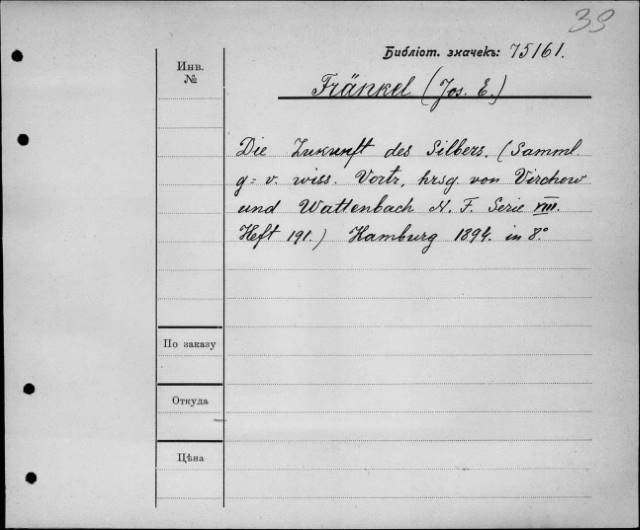 39
Библіот. значекъ: 75161.
Инв.
№
Fränkel (Jos. E.)
Die Zukunft des Silbers. (Samml.
g= v. wiss. Vortr, hrsg. von Virchow
und Wattenbach N. F. Serie VIII.
Heft 191.) Hamburg 1894. in 8°.
По заказу
Откуда
Цѣна